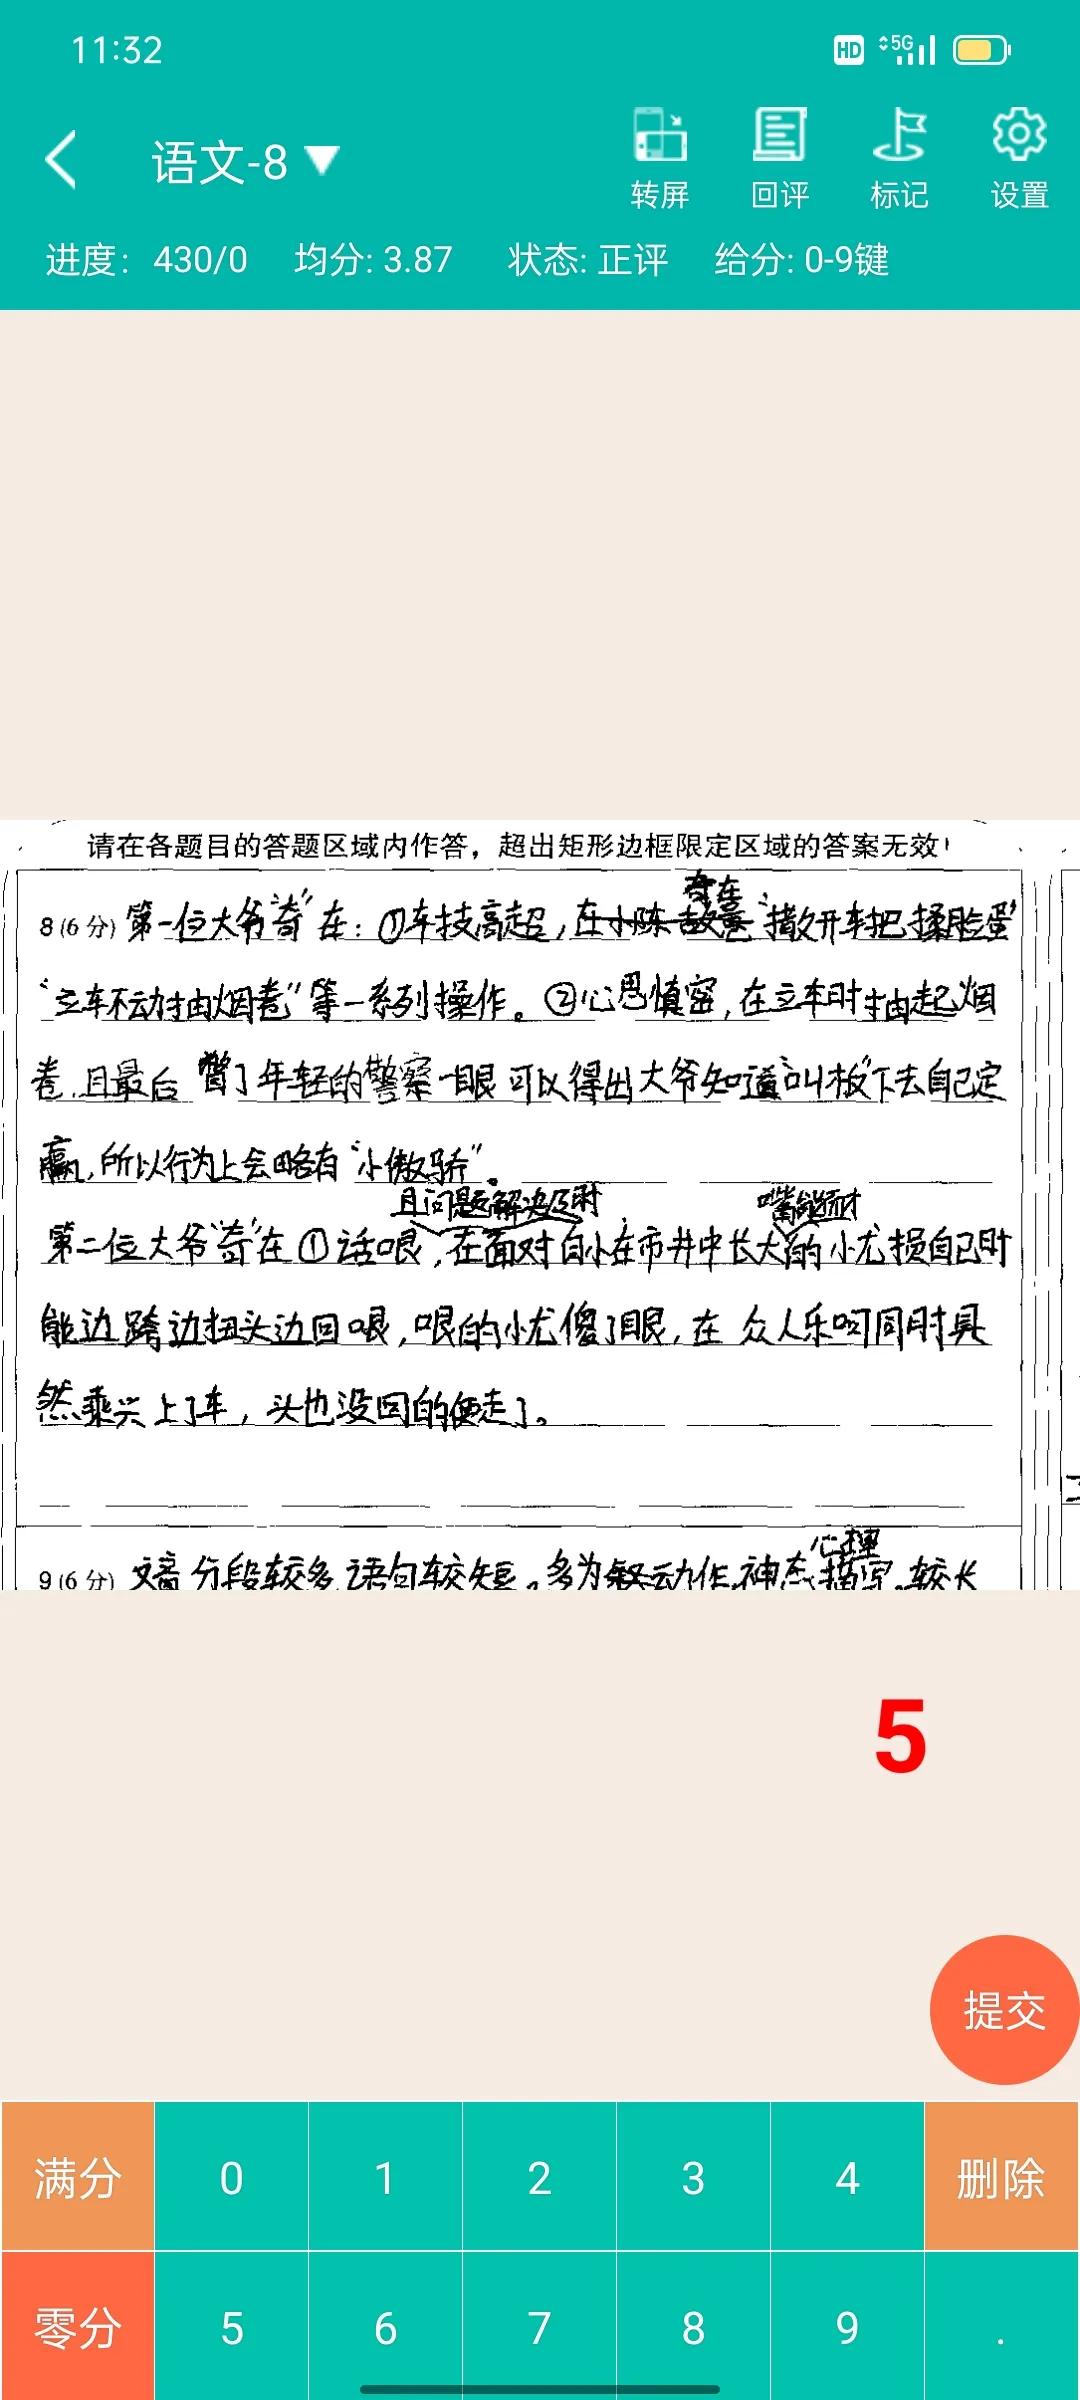 11:32
HD 5G
语文-8
转屏 回评 标记 设置
进度: 430/0 均分: 3.87 状态: 正评 给分: 0-9键
请在各题目的答题区域内作答，超出矩形边框限定区域的答案无效!
奇在
8 (6 分) 第一位大爷“奇”在：①车技高超，“撒开车把揉脸蛋”
“立车不动抽烟卷”等一系列操作。②心思慎密，在立车时抽起烟
卷，且最后瞥了年轻的警察一眼可以得出大爷知道“叫板”下去自己定
赢，所以行为上会略有“小傲骄”。
且问题解决及时 嘴能巧才
第二位大爷“奇”在①话哏，在面对自小在市井中长大的小尤损自己时
能边跨边扭头边回哏，哏的小尤傻了眼，在众人乐呵同时具
然乘兴上了车，头也没回的便走了。
心理
9 (6 分) 文章分段较多，语句较短，多为动作、神态描写，较长
5
提交
满分 0 1 2 3 4 删除
零分 5 6 7 8 9 .